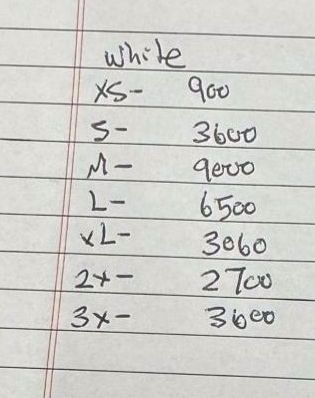 White
XS- 900
S- 3600
M- 9000
L- 6500
XL- 3060
2x- 2700
3x- 3600